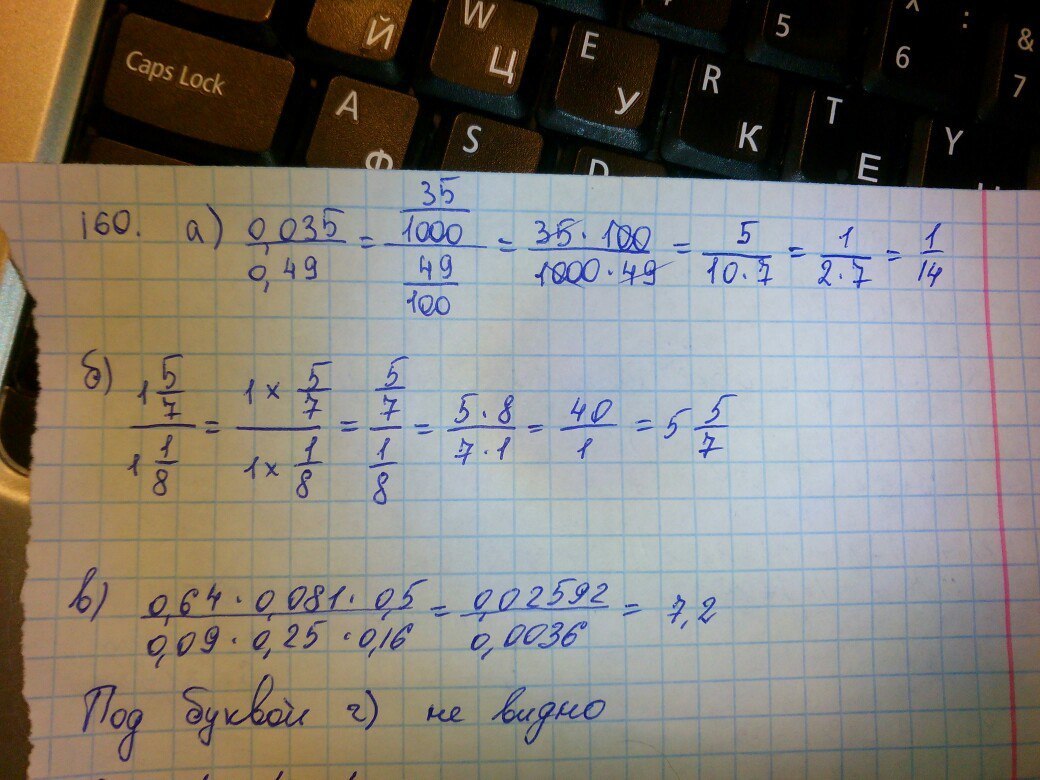 Caps Lock Й W Ц E У R К 5 6 : & 7
A Ф S D T Е Y
160. а) 0,035/0,49 = (35/1000)/(49/100) = 35·100/1000·49 = 5/10·7 = 1/2·7 = 1/14
б) 1 5/7 / 1 1/8 = 1×5/7 / 1×1/8 = 5/7 / 1/8 = 5·8/7·1 = 40/1 = 5 5/7
в) 0,64·0,081·0,5/0,09·0,25·0,16 = 0,02592/0,0036 = 7,2
Под буквой г) не видно